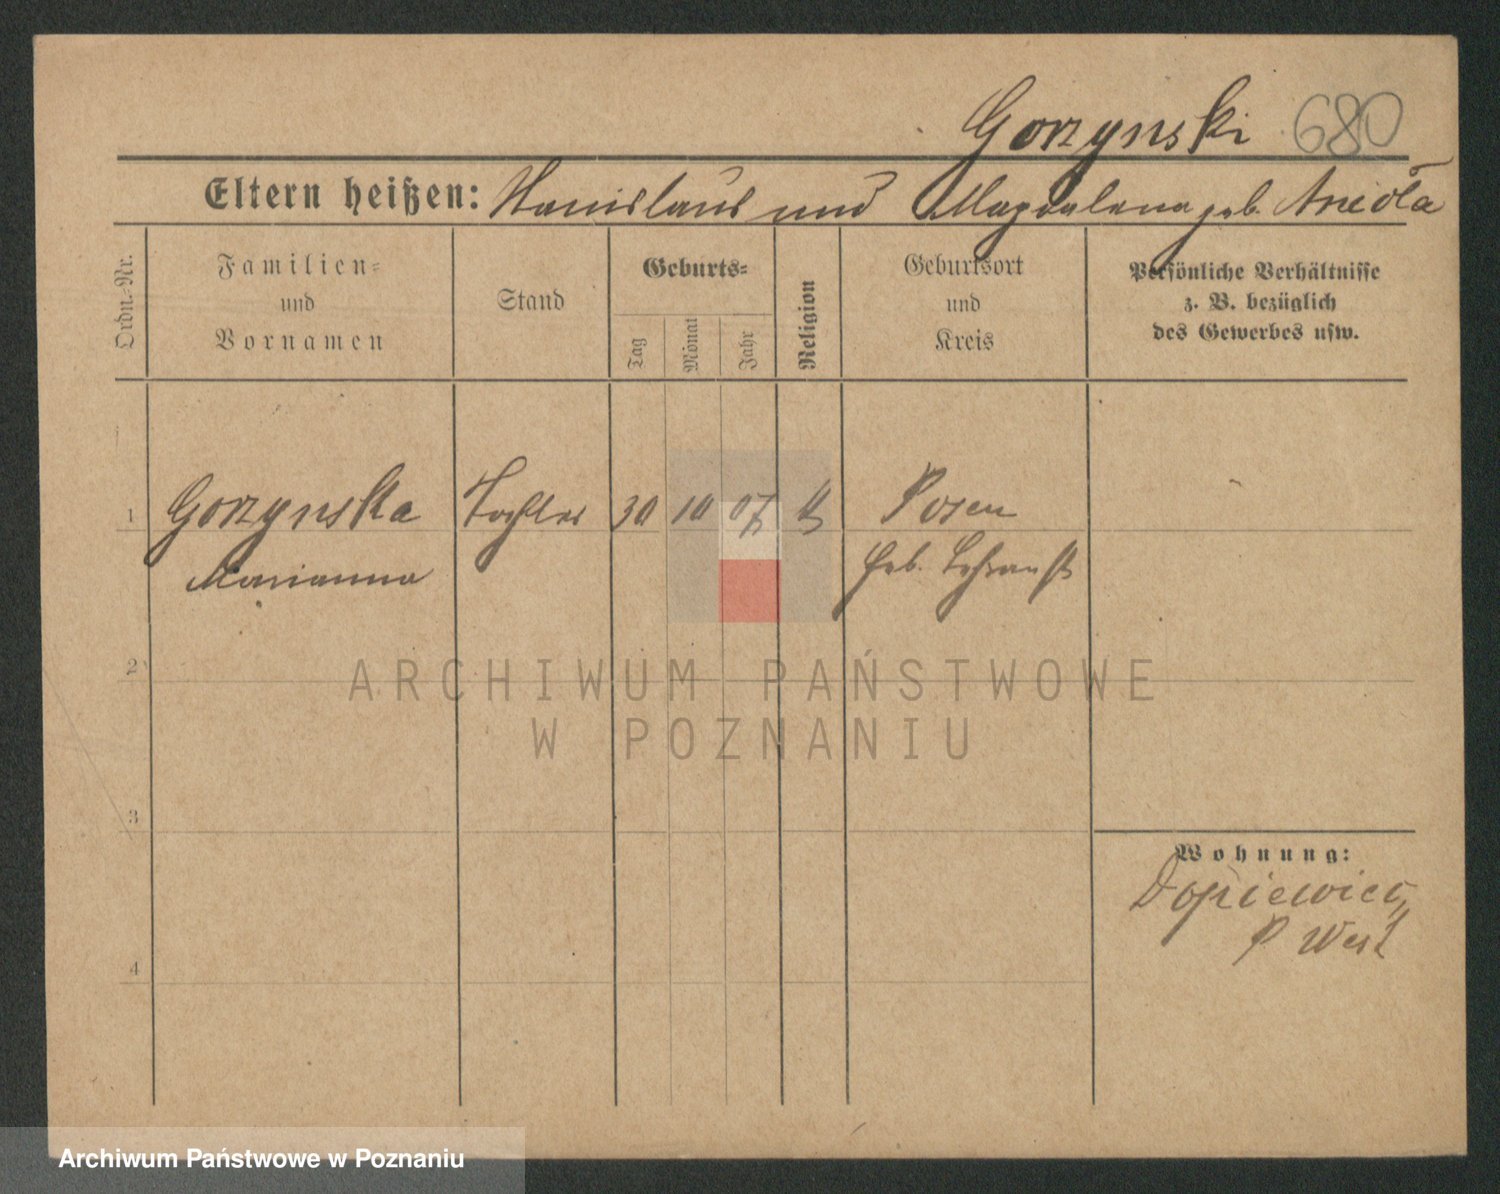 Gorzynski 680
Eltern heißen: Stanislaus und Magdalena geb. Anioła
Ordn.-Nr.
Familien-
und
Vornamen
Stand
Geburts-
Tag
Monat
Jahr
Religion
Geburtsort
und
Kreis
Persönliche Verhältnisse
z. B. bezüglich
des Gewerbes usw.
1 Gorzynska Tochter 30 10 07 Posen
Marianna Heb. Lehranst
2
ARCHIWUM PAŃSTWOWE
W POZNANIU
3
Wohnung:
Dopiewiec
P West
4
Archiwum Państwowe w Poznaniu